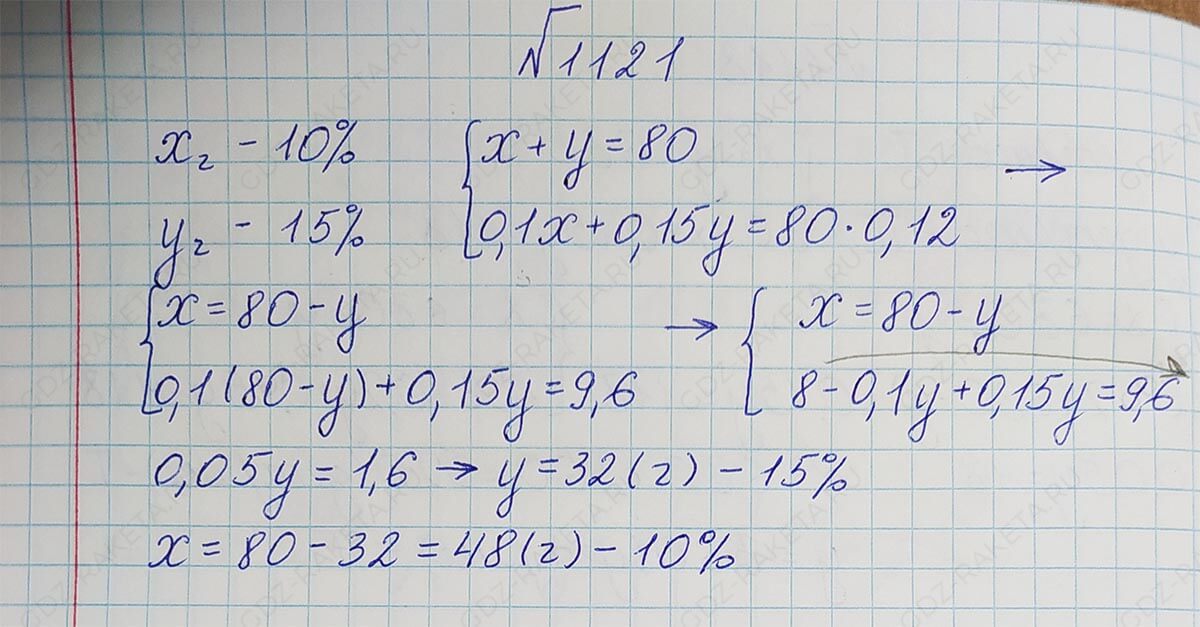 №1121
xг - 10% {x + y = 80 →
yг - 15% 0,1x + 0,15y = 80 · 0,12
{x = 80 - y → {x = 80 - y
0,1(80 - y) + 0,15y = 9,6 8 - 0,1y + 0,15y = 9,6
0,05y = 1,6 → y = 32 (г) - 15%
x = 80 - 32 = 48 (г) - 10%
GDZ-RAKETA.RU